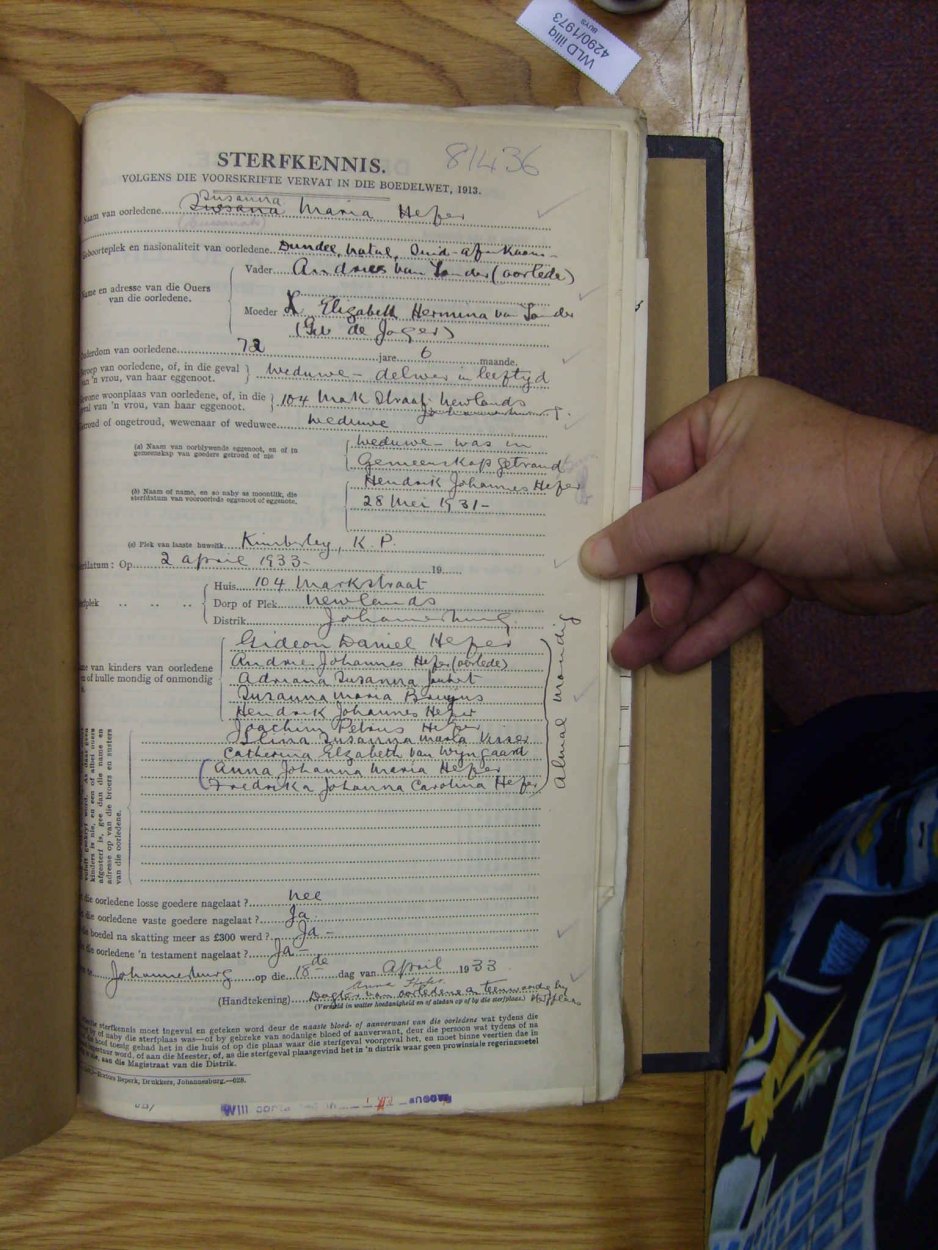 WLD illiq
4290/1973
GUYS
81436
STERFKENNIS.
VOLGENS DIE VOORSKRIFTE VERVAT IN DIE BOEDELWET, 1913.
Susanna
Naam van oorledene Susana Maria Hefer
Geboorteplek en nasionaliteit van oorledene Dundee, Natal, Suid-Afrikaans
Vader Andries van Tonder (oorlede)
Name en adresse van die Ouers
van die oorledene.
Moeder Elizabeth Hermina van Tonder
(Geb de Jager)
Ouderdom van oorledene 72 jare 6 maande.
Beroep van oorledene, of, in die geval
van 'n vrou, van haar eggenoot. Weduwe - delwer in leeftyd
Gewone woonplaas van oorledene, of, in die
geval van 'n vrou, van haar eggenoot. 104 Mark Straat Newlands
Johannesburg.
Getroud of ongetroud, wewenaar of weduwee Weduwe
(a) Naam van oorblywende eggenoot, en of in
gemeenskap van goedere getroud of nie
Weduwe - was in
Gemeenskap getroud
(b) Naam of name, en so naby as moontlik, die
sterfdatum van vooroorlede eggenoot of eggenote.
Hendrik Johannes Hefer
28 Mei 1931-
(c) Plek van laaste huwelik Kimberley, K.P.
Sterfdatum: Op 2 April 1933- 19
Huis 104 Markstraat
Sterfplek Dorp of Plek Newlands
Distrik Johannesburg
Gideon Daniel Hefer
Name van kinders van oorledene
en of hulle mondig of onmondig
Andries Johannes Hefer (oorlede)
Adriana Susanna Joubert
Susanna Maria Bruyns
Hendrik Johannes Hefer
Joachim Petrus Hefer
Susanna Maria Visser
Catherina Elizabeth van Wyngaard
Anna Johanna Maria Hefer
Fredrika Johanna Carolina Hefer
Almal Mondig
kinders is nie, en een of albei ouers
afgesterf is, gee dan die name en
adresse op van die broers en susters
van die oorledene.
die oorledene losse goedere nagelaat? Nee
die oorledene vaste goedere nagelaat? Ja
boedel na skatting meer as £300 werd? Ja -
die oorledene 'n testament nagelaat? Ja -
te Johannesburg op die 18de dag van April 1933
Anna Hefer
(Handtekening) Dogter van oorledene & teenwoordig by
sterfplaas
(Vermeld in watter hoedanigheid en of aldaan op of by die sterfplaas.)
sterfkennis moet ingevul en geteken word deur die naaste bloed- of aanverwant van die oorledene wat tydens die
of naby die sterfplaas was—of by gebreke van sodanige bloed of aanverwant, deur die persoon wat tydens of na
die hoof toesig gehad het in die huis of op die plaas waar die sterfgeval voorgeval het, en moet binne veertien dae in
word, of aan die Meester, of, as die sterfgeval plaasgevind het in 'n distrik waar geen provinsiale regeringsetel
is nie, aan die Magistraat van die Distrik.
Beperk, Drukkers, Johannesburg.—628.